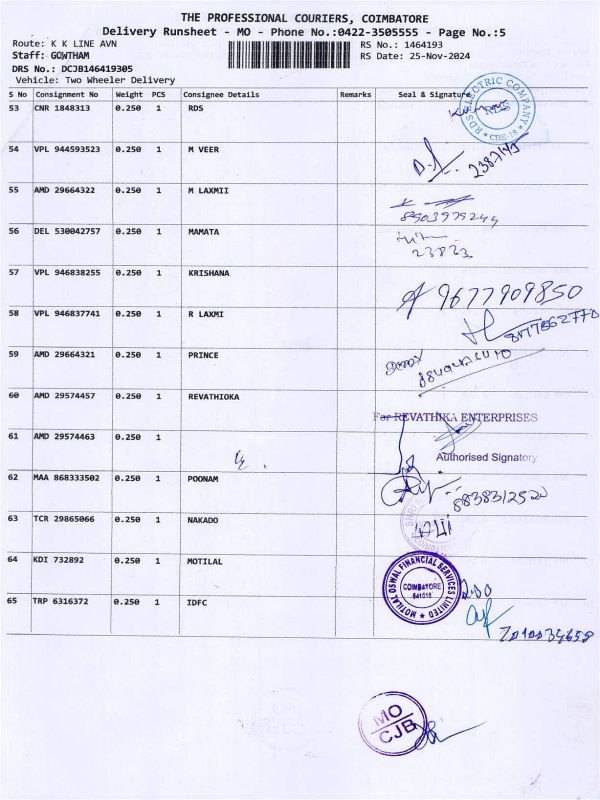 THE PROFESSIONAL COURIERS, COIMBATORE
Delivery Runsheet - MO - Phone No.:0422-3505555 - Page No.:5
Route: K K LINE AVN RS No.: 1464193
Staff: GOWTHAM RS Date: 25-Nov-2024
DRS No.: DCJB146419305
Vehicle: Two Wheeler Delivery
S No Consignment No Weight PCS Consignee Details Remarks Seal & Signature
53 CNR 1848313 0.250 1 RDS
RDS ELECTRIC COMPANY
RDS
CBE-18
54 VPL 944593523 0.250 1 M VEER
55 AMD 29664322 0.250 1 M LAXMII
8903979244
56 DEL 530042757 0.250 1 MAMATA
23823
57 VPL 946838255 0.250 1 KRISHANA
9677909850
58 VPL 946837741 0.250 1 R LAXMI
59 AMD 29664321 0.250 1 PRINCE
60 AMD 29574457 0.250 1 REVATHIOKA
For REVATHIKA ENTERPRISES
61 AMD 29574463 0.250 1
Authorised Signatory
62 MAA 868333502 0.250 1 POONAM
8838312520
63 TCR 29865066 0.250 1 NAKADO
64 KDI 732892 0.250 1 MOTILAL
MOTILAL OSWAL FINANCIAL SERVICES LIMITED
COIMBATORE
641018
65 TRP 6316372 0.250 1 IDFC
7010034658
MO
CJB